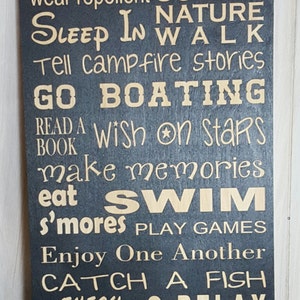 Wear repellent
Sleep In NATURE WALK
Tell campfire stories
GO BOATING
READ A BOOK wish on stars
make memories
eat s'mores SWIM
PLAY GAMES
Enjoy One Another
CATCH A FISH
RELAX